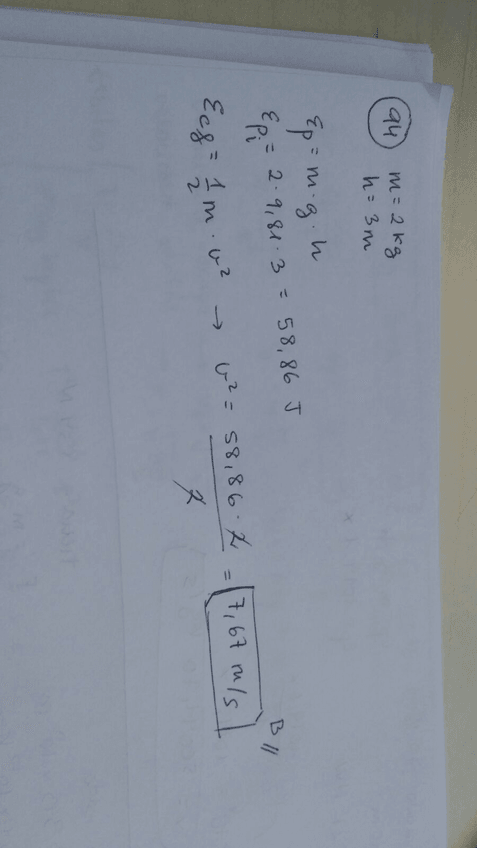 94 m = 2 kg
h = 3 m
Ep = m · g · h
Epi = 2 · 9,81 · 3 = 58,86 J
Ecf = 1/2 m · v² → v² = 58,86 · 2 / 2 = 7,67 m/s B //